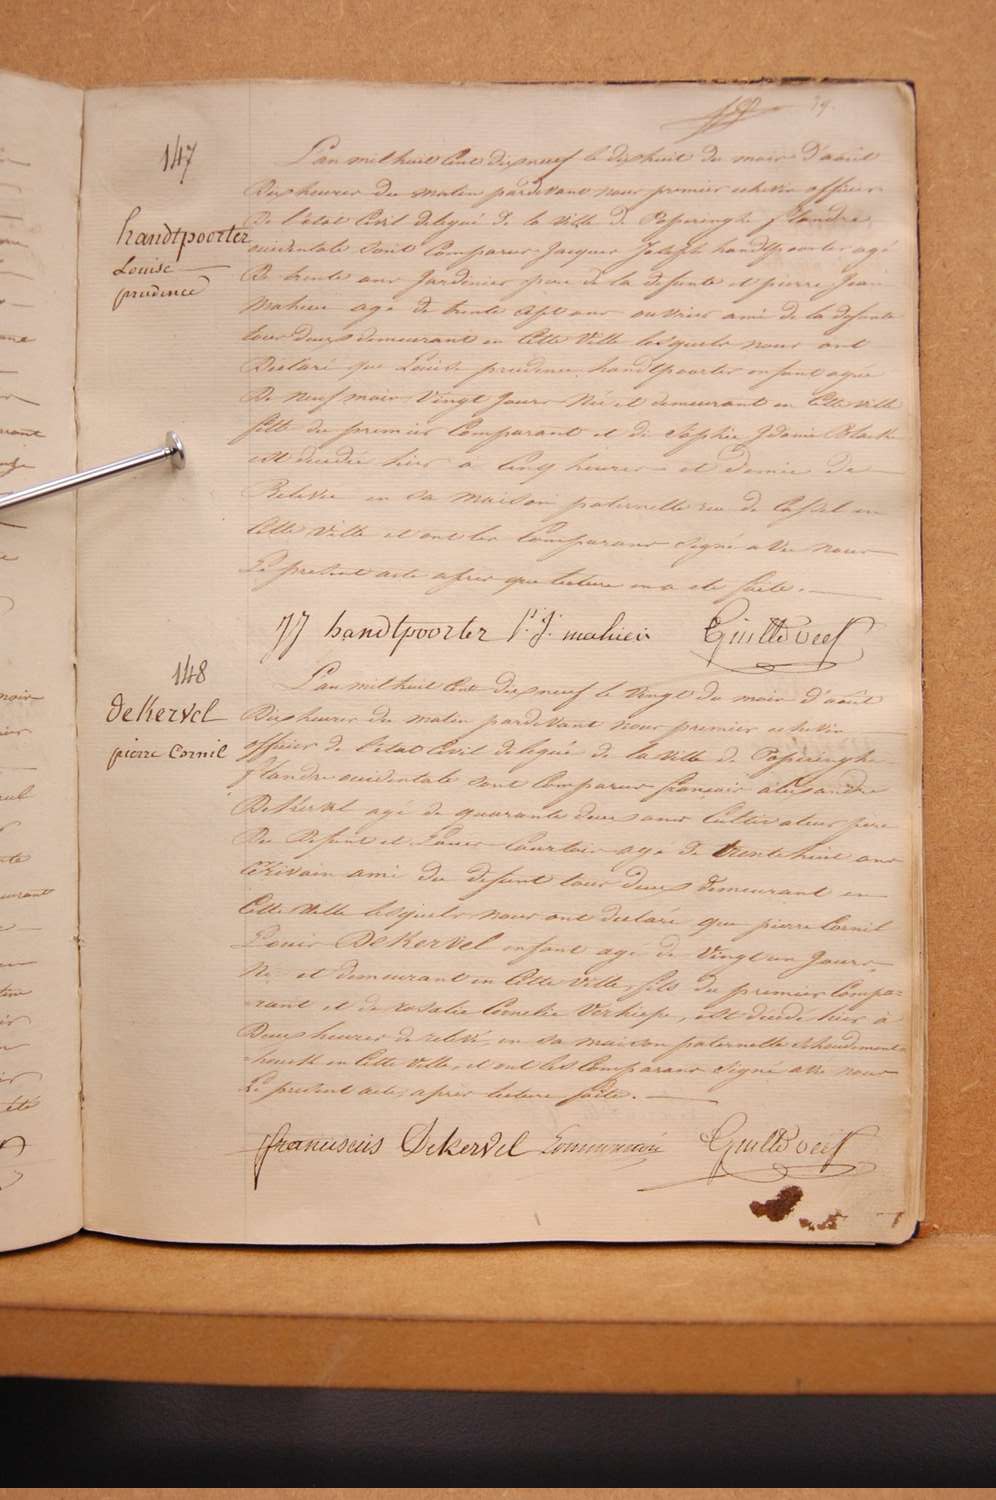 39.
147
handtpoorter
Louise
prudence
L'an mil huit Cent dix neuf le dix huit du mois d'août
Dix heures du matin pardevant nous premier echevin officier
De l'etat Civil delegué de la Ville de Poperinghe flandre
occidentale sont Comparus Jacques Joseph handtpoorter agé
De trente ans Jardinier pere de la defunte et pierre Jean
Mahieu agé de trente sept ans ouvrier ami de la defunte
tous deux demeurant en Cette Ville lesquels nous ont
Declaré que Louise prudence handtpoorter enfant agée
De neuf mois Vingt Jours Née et demeurant en Cette ville
fille du premier Comparant et de Sophie
est decedée hier a Cinq heures et demie de
Relevée en sa maison paternelle rue de Cassel en
Cette Ville et ont les Comparans signé avec nous
Le present acte après que lecture en a été faite.
JJ handtpoorter P: J: mahieu
148
deKervel
pierre Cornil
L'an mil huit Cent dix neuf le Vingt du mois d'août
Dix heures du matin pardevant nous premier echevin
officier de l'etat Civil delegué de la Ville de Poperinghe
flandre occidentale sont Comparus françois alexandre
DeKervel agé de quarante deux ans Cultivateur pere
Du Defunt et Courtois agé de trente huit ans
Ecrivain ami du defunt tous deux demeurant en
Cette Ville lesquels nous ont declaré que pierre Cornil
Louis DeKervel enfant agé de Vingt un Jours
Né et demeurant en Cette Ville, fils du premier Compa=
=rant et de rosalie Cornelie Verhiepe, est decedé hier à
Deux heures de relevée, en sa maison paternelle Schoudemont=
=houck en Cette Ville, et ont les Comparans signé avec nous
Le present acte, après lecture faite.
franciscus Dekervel